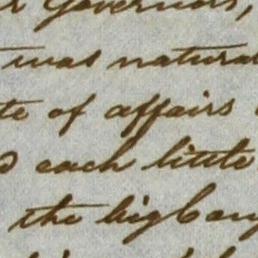 Governors,
was natural
te of affairs
each little
the big Can